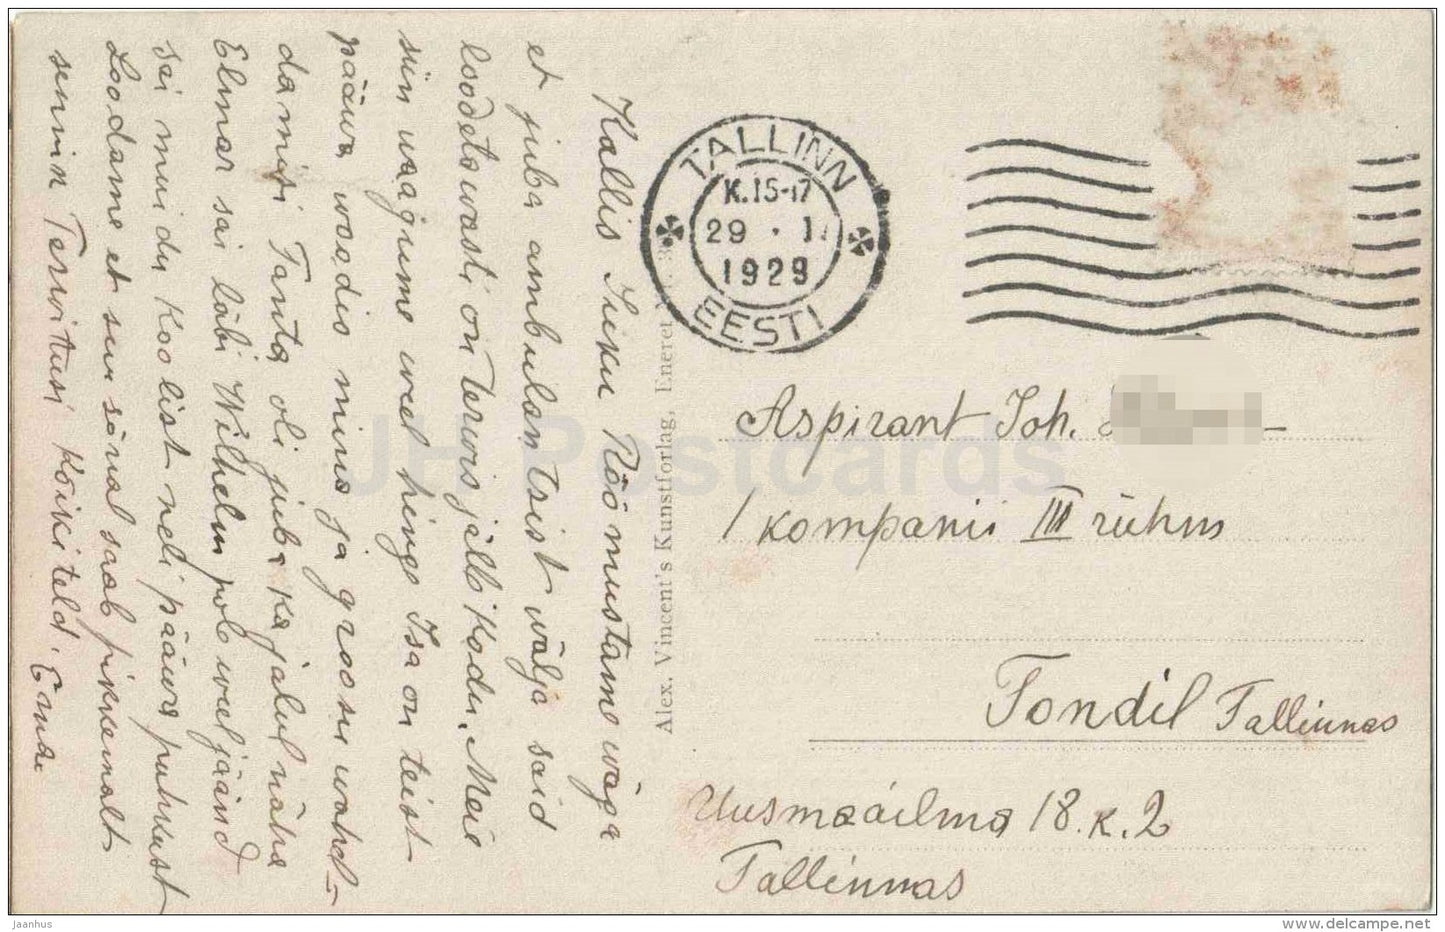 Kallis Juku Rõõmustame wäga
et juba ambulantsist wälja said
loodetawasti on Terwis jälle Kodu. Meie
siin waagume weel hinge Isa on teist
pääwa woodis minus ja groosu wahd-
da misi Tanta oli juba ka jalul näha
Elmar sai läbi Wilhelm pole weel jäänd
sai muidu Koolist neli pääwa puhkust
Loodame et suu sõral saab pikkemalt
sennia Terwitusi kõikiteld. Ema
Alex. Vincent's Kunstforlag, Eneret
TALLINN
K.15-17
29 . 1
1929
EESTI
Aspirant Joh.
1 kompanii III rühm
Tondil Tallinnas
Uusmaailma 18. k. 2
Tallinnas
JH Postcards
jaanhus
www.delcampe.net